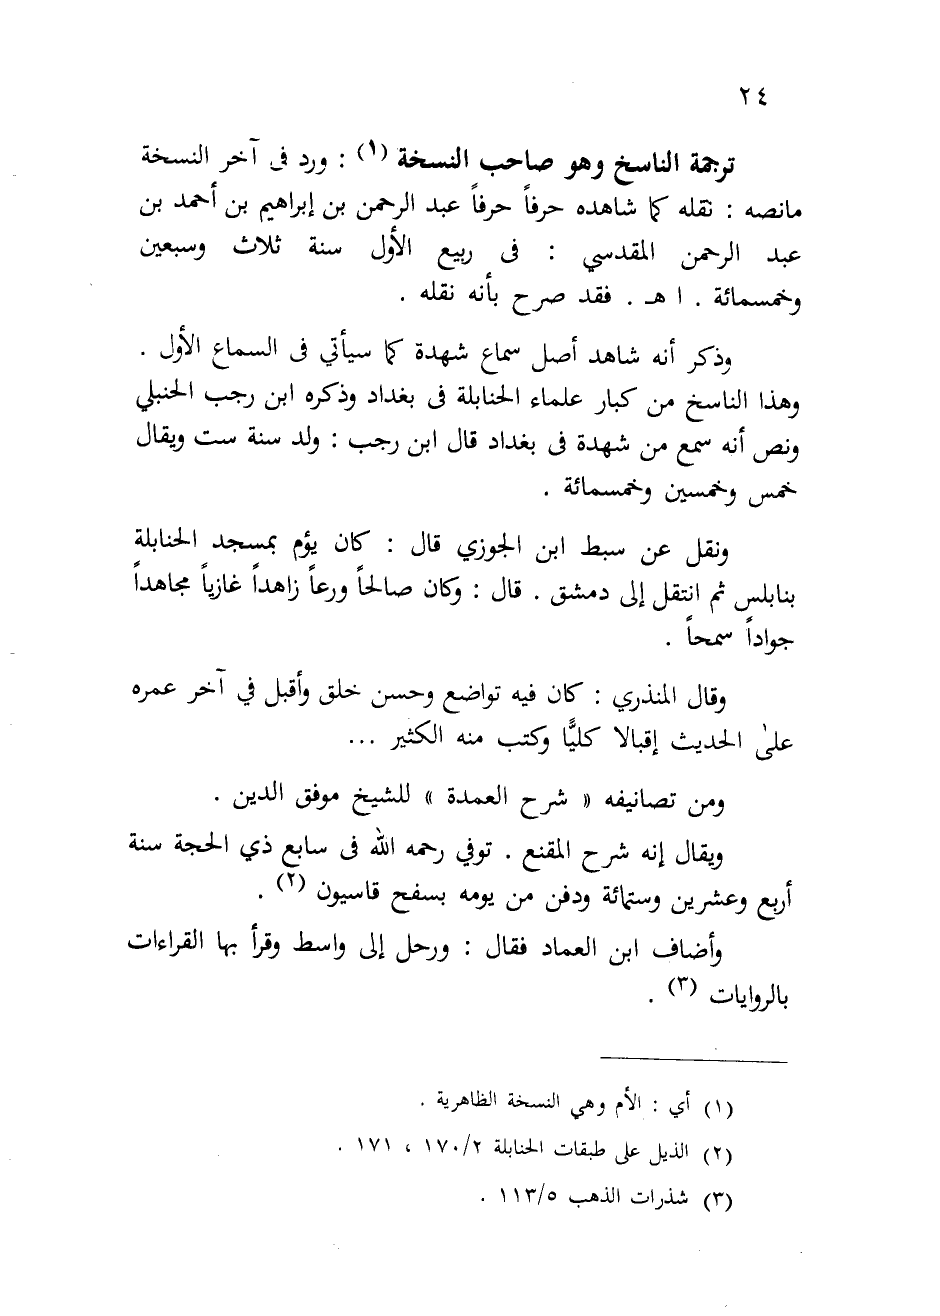 ٢٤
ترجمة الناسخ وهو صاحب النسخة (١) : ورد فى آخر النسخة
مانصه : نقله كما شاهده حرفاً حرفاً عبد الرحمن بن إبراهيم بن أحمد بن
عبد الرحمن المقدسي : فى ربيع الأول سنة ثلاث وسبعين
وخمسمائة . ا هـ . فقد صرح بأنه نقله .
وذكر أنه شاهد أصل سماع شهدة كما سيأتي فى السماع الأول .
وهذا الناسخ من كبار علماء الحنابلة فى بغداد وذكره ابن رجب الحنبلي
ونص أنه سمع من شهدة فى بغداد قال ابن رجب : ولد سنة ست ويقال
خمس وخمسين وخمسمائة .
ونقل عن سبط ابن الجوزي قال : كان يؤم بمسجد الحنابلة
بنابلس ثم انتقل إلى دمشق . قال : وكان صالحاً ورعاً زاهداً غازياً مجاهداً
جواداً سمحاً .
وقال المنذري : كان فيه تواضع وحسن خلق وأقبل في آخر عمره
على الحديث إقبالا كليًّا وكتب منه الكثير ...
ومن تصانيفه « شرح العمدة » للشيخ موفق الدين .
ويقال إنه شرح المقنع . توفي رحمه الله فى سابع ذي الحجة سنة
أربع وعشرين وستمائة ودفن من يومه بسفح قاسيون (٢) .
وأضاف ابن العماد فقال : ورحل إلى واسط وقرأ بها القراءات
بالروايات (٣) .
(١) أي : الأم وهي النسخة الظاهرية .
(٢) الذيل على طبقات الحنابلة ١٧٠/٢ ، ١٧١ .
(٣) شذرات الذهب ١١٣/٥ .